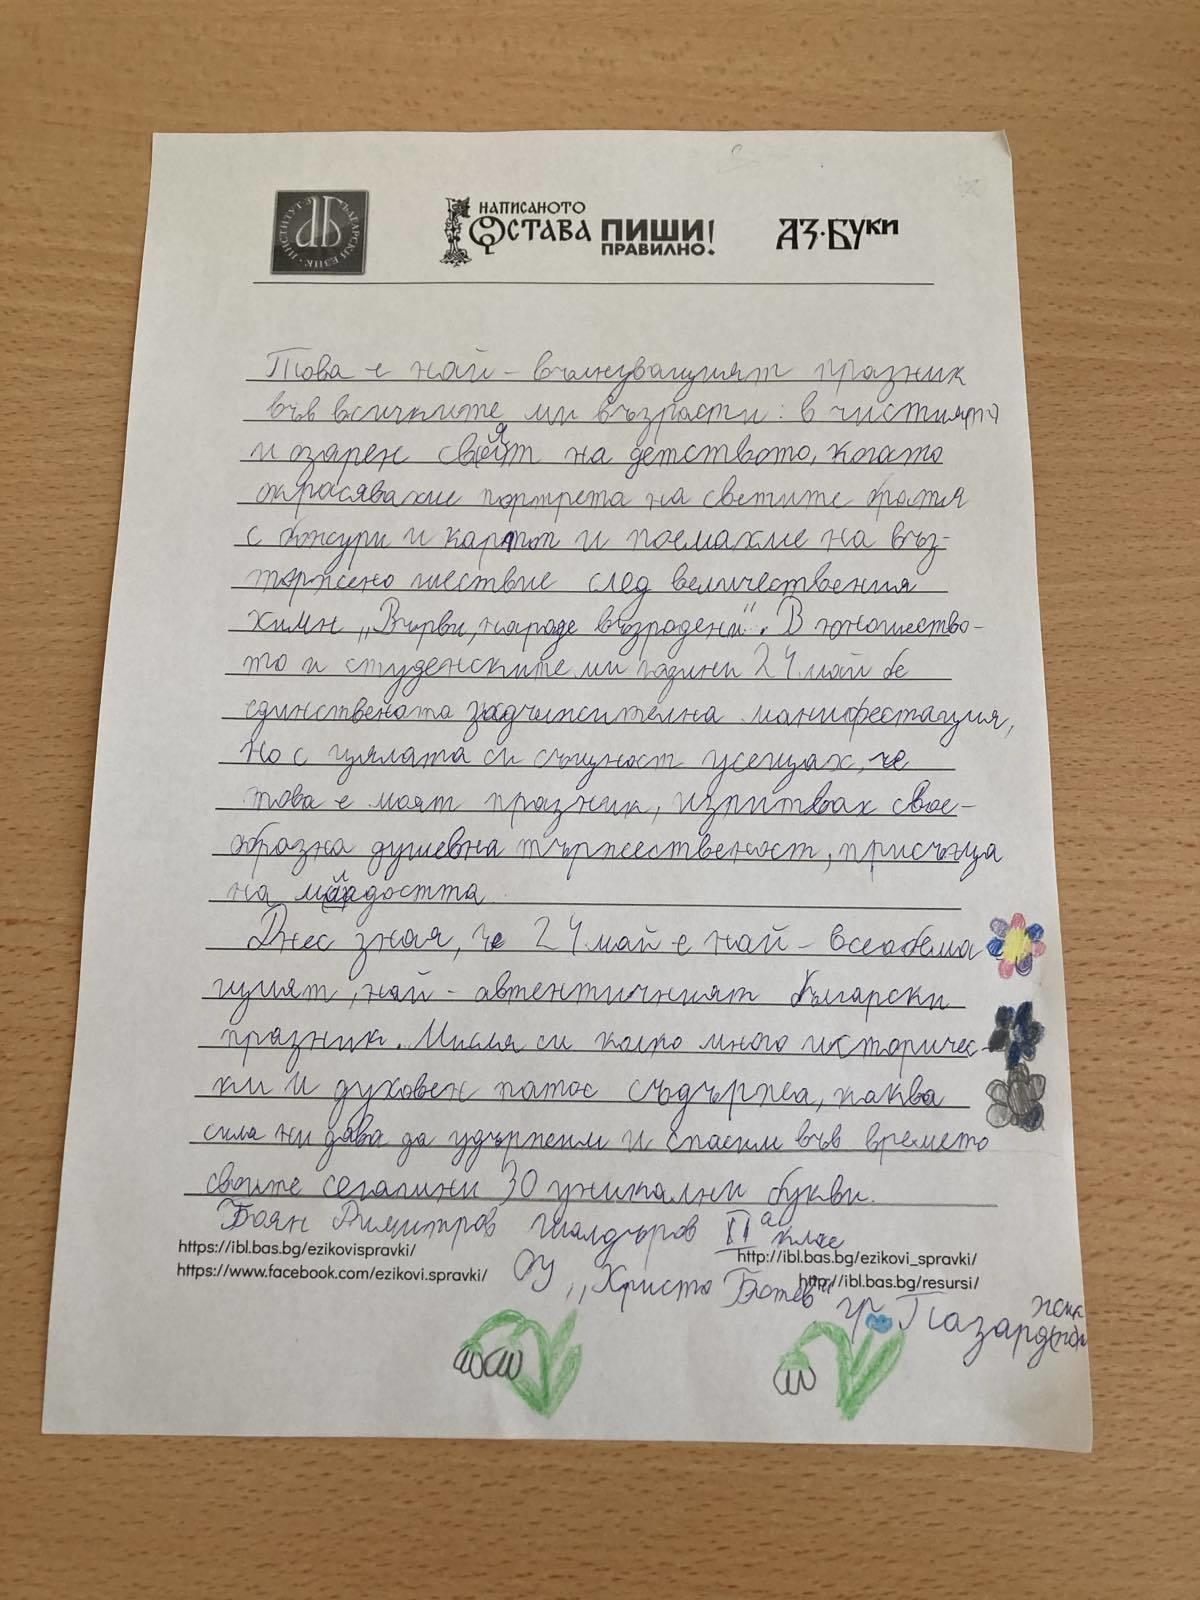 ИНСТИТУТ ЗА БЪЛГАРСКИ ЕЗИК
НАПИСАНОТО
ОСТАВА ПИШИ
ПРАВИЛНО!
АЗ·БУКИ
Това е най-вълнуващият празник
във всичките ми възрасти: в чистият
и озарен свят на детството, когато
окрасявахме портрета на светите братя
с божури и картон и поемахме на въз-
торжено шествие след величествения
химн „Върви, народе възродени". В юношество-
то и студенските ми години 24 май бе
единствената задължителна манифестация,
но с цялата си същност усещах, че
това е моят празник, изпитвах свое-
образна душевна тържественост, присъща
на младостта.
Днес зная, че 24 май е най-всеобема
щият, най-автентичният български
празник. Мисля си колко много историчес-
ки и духовен патос съдържа, каква
сила ни дава да удържим и спасим във времето
своите сегашни 30 уникални букви.
Боян Димитров Шалдъров IIа клас
https://ibl.bas.bg/ezikovispravki/
http://ibl.bas.bg/ezikovi_spravki/
https://www.facebook.com/ezikovi.spravki/
ОУ „Христо Ботев"
http://ibl.bas.bg/resursi/
гр Пазард